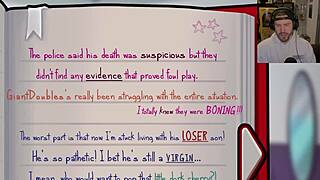 The police said his death was suspicious but they
didn't find any evidence that proved foul play.
GiantDoubloa's really been struggling with the entire situation.
I totally knew they were BONING!!!
The worst part is that now I'm stuck living with his LOSER son!
He's so pathetic! I bet he's still a VIRGIN...
I mean, who would want to pop that little dork cherry?!